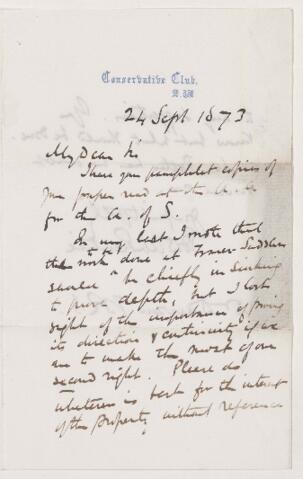 Conservative Club,
24 Sept 1873
My Dear Sir
I have your pamphlet copies of
your paper read at the
for the A. of S.
In my last I wrote that
the work done at
be chiefly in sinking
to prove depth, but I lost
sight of the importance of proving
its direction & continuity if we
are to make the most of our
second right. Please do
whatever is best for the interest
of the Property without reference